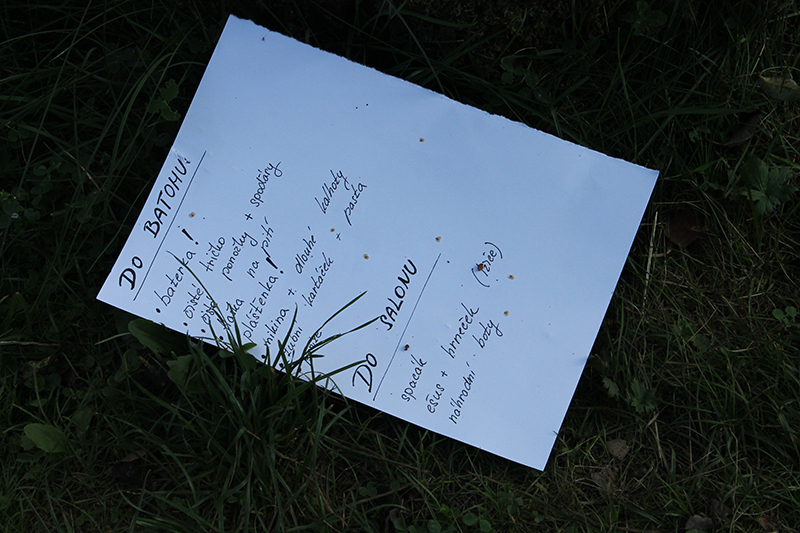 DO BATOHU:
• baterka!
• čisté tričko
• čisté ponožky + spoďáry
• láhka na pití
• pláštěnka!
• mikina + dlouhé kalhoty
kartáček + pasta
DO SALONU
spacák
ešus + hrneček (lžíce)
náhradní boty